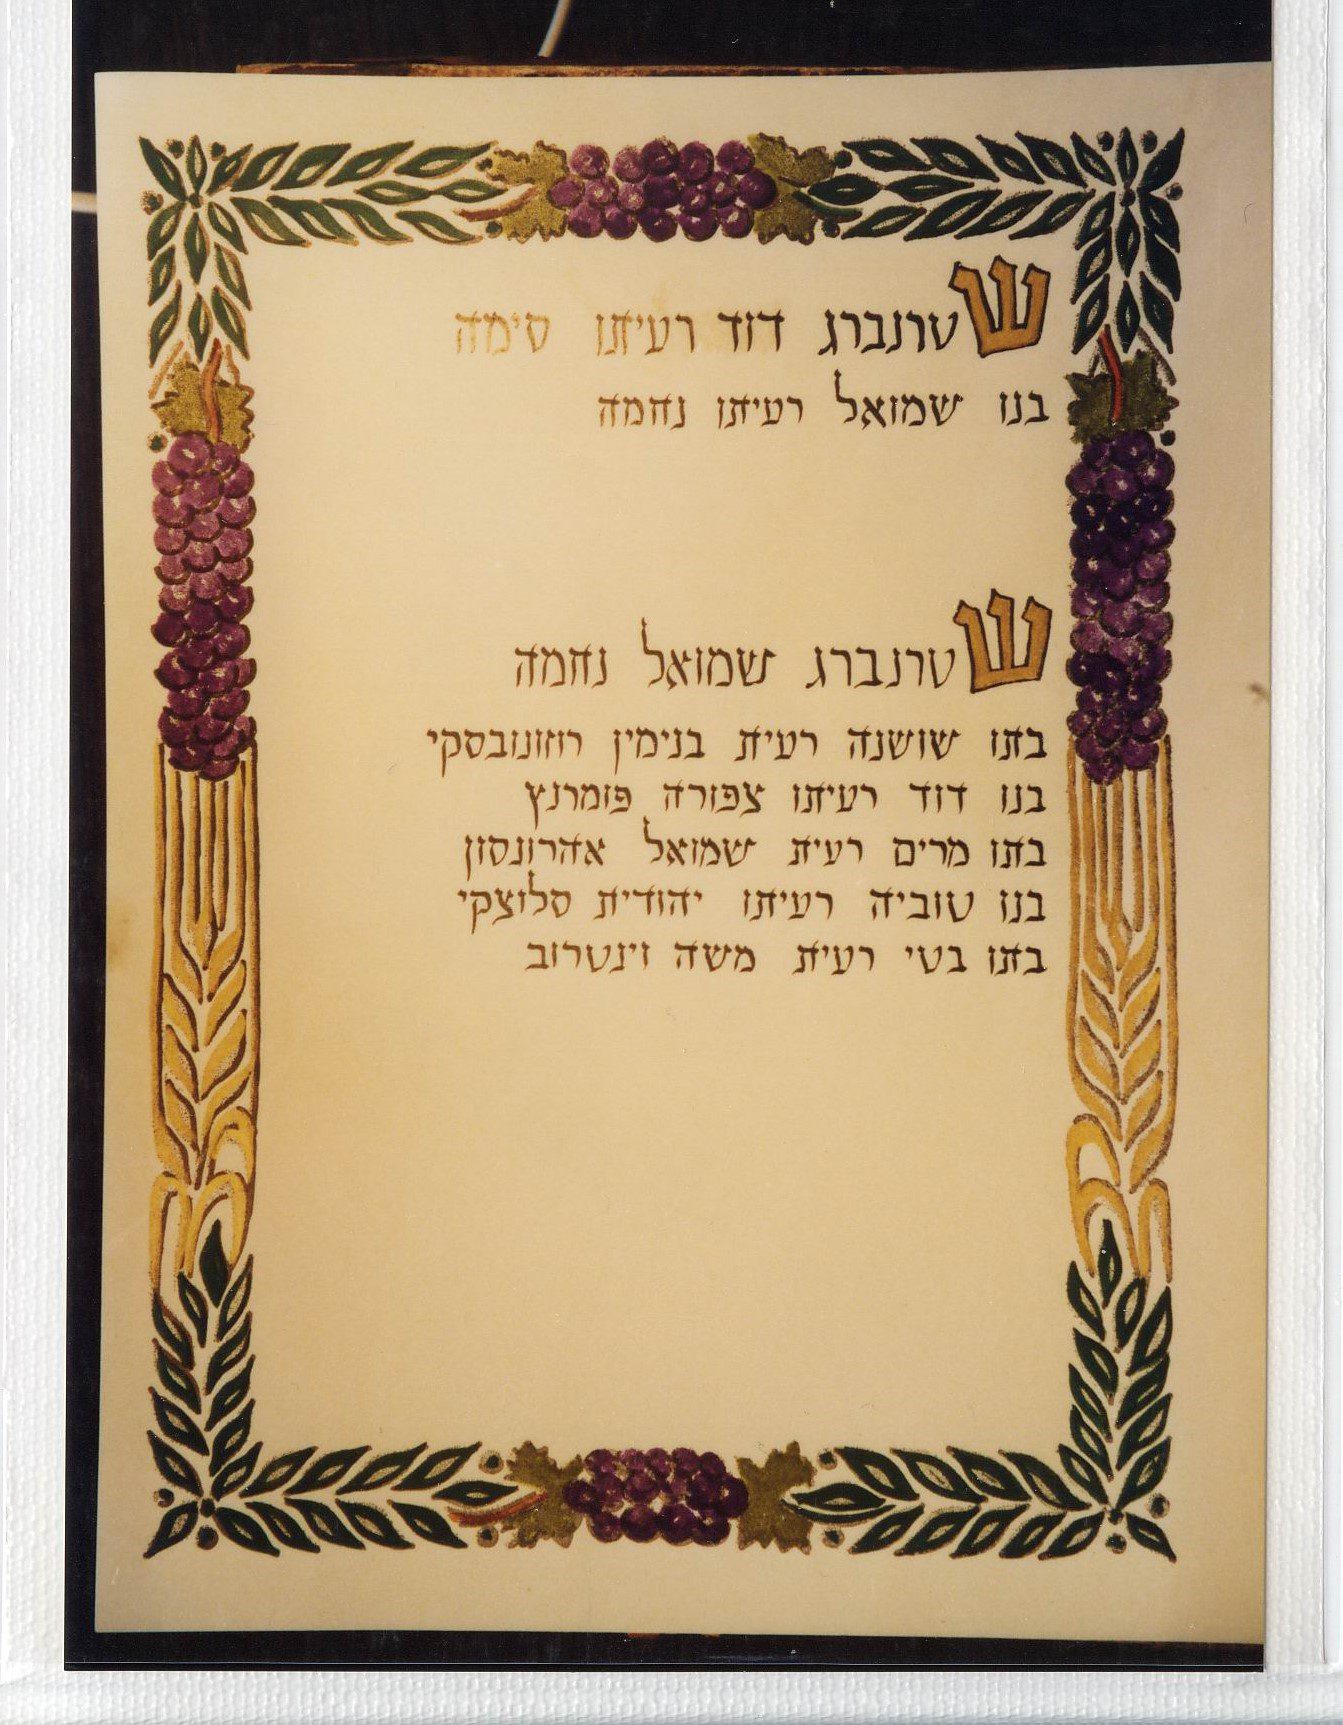 שטרנברג דוד רעיתו סימה
בנו שמואל רעיתו נחמה
שטרנברג שמואל נחמה
בתו שושנה רעית בנימין רוזונובסקי
בנו דוד רעיתו צפורה פומרנץ
בתו מרים רעית שמואל אהרונסון
בנו טוביה רעיתו יהודית סלוצקי
בתו בטי רעית משה וינטרוב